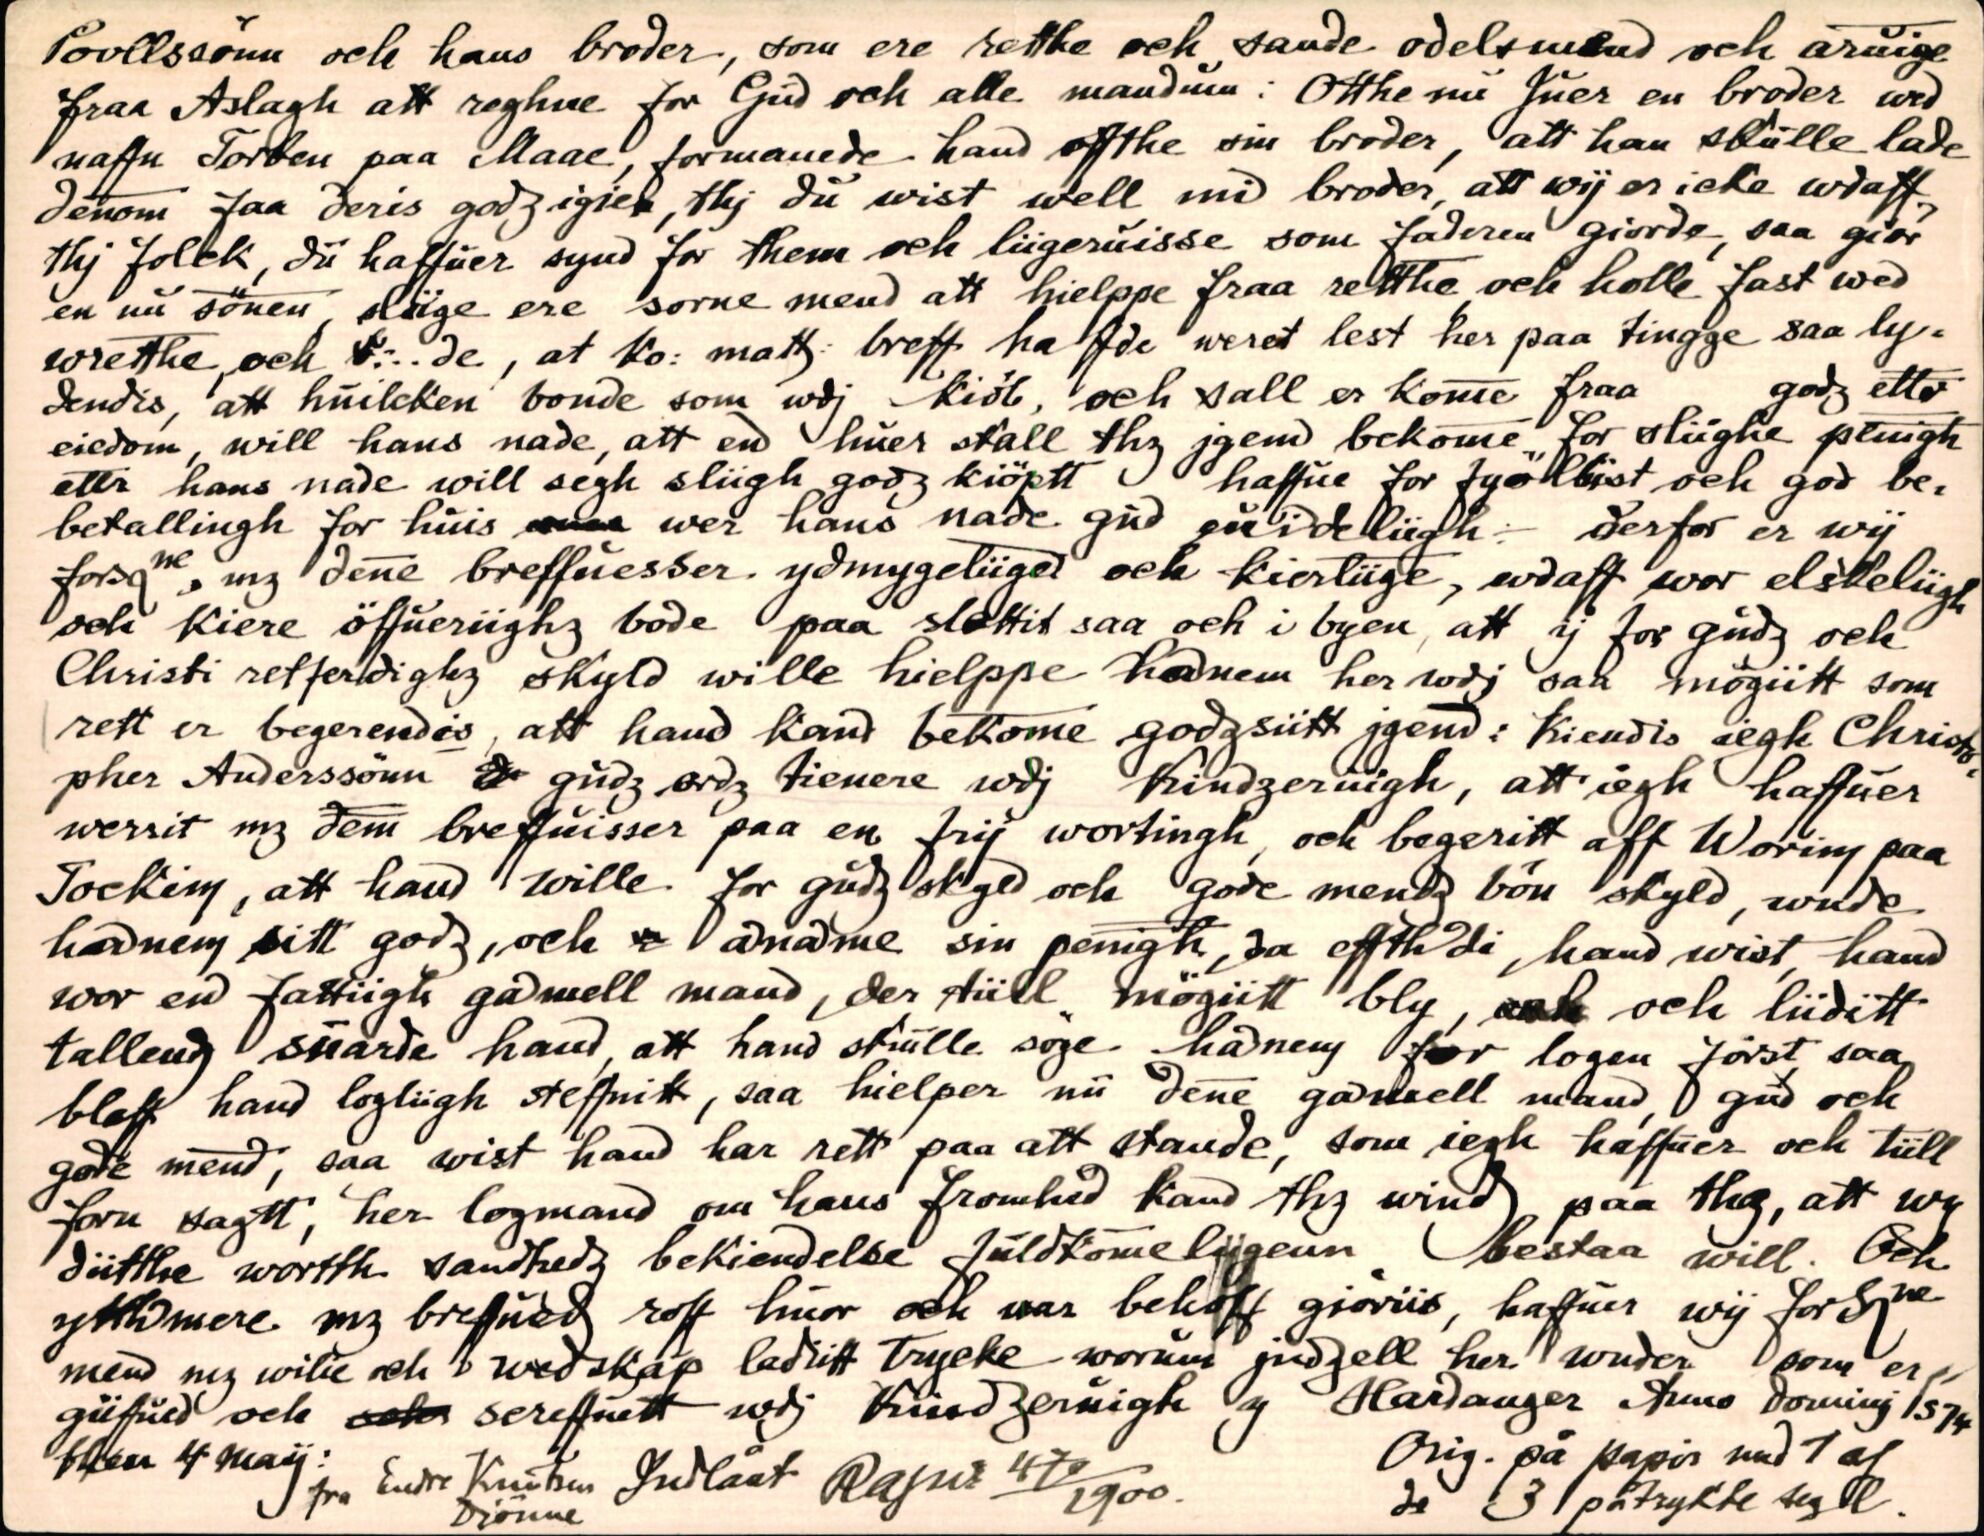 Povllssönn och hans broder, som ere retthe och sande odelsmend och aruige
fraa Aslagh att reghne for Gud och alle mandum: Otthe nu Juer en broder wed
naffn Torben paa Maae, formanede hand offthe sin broder, att han skulle lade
denom faa deris godz igien, thj du wist well mid broder, att wij er icke wdaff
thj folck, du haffuer synd for them och liigeruisse som faderen giorde, saa giör
en nu sönen, sliige ere sorne mend att hielppe fraa retthe och holle fast wed
wretthe, och ...de, at ko: matz: breff haffde weret lest her paa tingge saa ly-
dendis, att huilcken bonde som wdj kiöb, och sall er kome fraa godz etter
eiedom, will hans nade, att end huer skall thz jgend bekome for sliighe penigh
etti hans nade will segh sliigh godz kiöptt haffue for fyölkist och god be-
betallingh for huis wer hans nade gud euideliigh - derfor er wij
forsqne, mz dene breffuesser ydmygeliiged och kierliige, wdaff wor elskeliigh
och kiere öffueriighz bode paa slottit saa och i byen, att ij for gudz och
Christi retferdighz skyld wille hielppe hadnem her wdj saa mögiitt som
rett er begerendis, att hand kand bekome godzsiitt jgend: Kiendis iegh Christo-
pher Anderssönn gudz ordz tienere wdj Kindzeruigh, att iegh haffuer
werrit mz dem breffuisser paa en frij wortingh, och begeritt aff Worinj paa
Tockinj, att hand wille for gudz skyld och gode mendz bön skyld, wnde
hadnem sitt godz, och adnadme sin penigh, da effthdi, hand wist, hand
wor end fattiigh gadmell mand, der tiill mögiitt bly, och liiditt
tallend suarde hand, att hand skulle söge hadnem for logen först, saa
bleff hand logliigh steffnitt, saa hielper nu dene gadmell mand, gud och
gode mend, saa wist hand har rett paa att stande, som iegh haffuer och tiill
forn sagtt, her logmand om hans fromhed kand thz wind paa thz, att wy
diitthe wortth sandhedz bekiendelse fuldkomeligenn bestaa will. Och
ytthdmere mz breffued roff huor och nar behoff giöriis, haffuer wij forsqne
mend mz wilie och wedskap ladiitt trycke worum jndzell her wnder som er
giifued och screffuett wdj Kiindzeruigh y Hardanger Anno dominij 1574
then 4 maij:
fra Endre Knutsen Djönne Indlånt Rafns 47/1900.
Orig. på papir med 1 af
de 3 påtrykte segl.